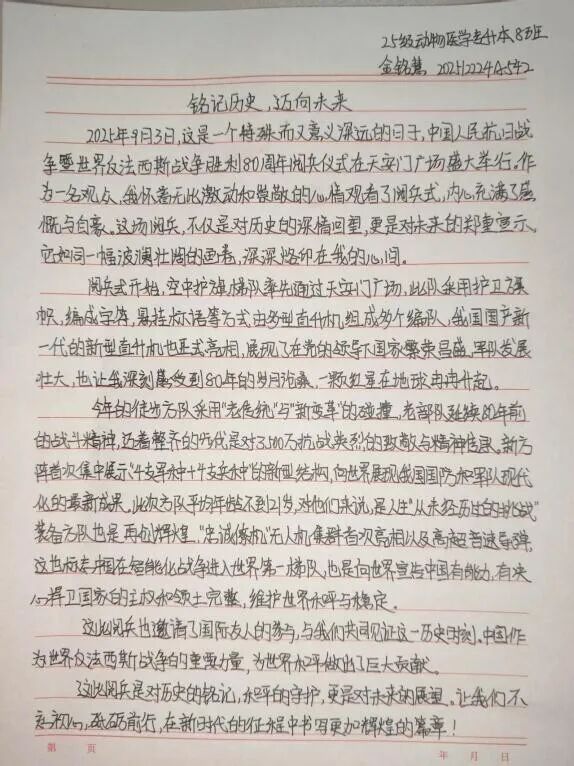 25级动物医学专升本8班
金铭慧 202512224A542
铭记历史,迈向未来
2025年9月3日,这是一个特殊而又意义深远的日子,中国人民抗日战
争暨世界反法西斯战争胜利80周年阅兵仪式在天安门广场盛大举行。作
为一名观众,我怀着无比激动和崇敬的心情观看了阅兵式,内心充满了感
慨与自豪。这场阅兵,不仅是对历史的深情回望,更是对未来的郑重宣示。
它如同一幅波澜壮阔的画卷,深深烙印在我的心间。
阅兵式开始,空中护旗梯队率先通过天安门广场,此队采用护卫旗
帜,编成字符,悬挂标语等方式由多型直升机组成多个编队,我国国产新
一代的新型直升机也正式亮相,展现了在党的领导下国家繁荣昌盛,军队发展
壮大,也让我深刻感受到80年的岁月沧桑,一颗红星在地球冉冉升起。
今年的徒步方队采用"老传统"与"新变革"的碰撞,老部队延续80年前
的战斗精神,迈着整齐的步伐是对3,500万抗战英烈的致敬与精神传承。新方
阵首次集中展示"4支军种+4支兵种"的新型结构,向世界展现我国国防和军队现代
化的最新成果。此次方队平均年龄不到21岁,对他们来说,是人生"从未经历过的挑战"
装备方队也是再创辉煌,"忠诚僚机"无人机集群首次亮相以及高超音速导弹,
这也标志中国在智能化战争进入世界第一梯队,也是向世界宣告中国有能力,有决
心捍卫国家的主权和领土完整,维护世界和平与稳定。
这次阅兵也邀请了国际友人的参与,与我们共同见证这一历史时刻,中国作
为世界反法西斯战争的重要力量,为世界和平做出了巨大贡献。
这次阅兵是对历史的铭记,和平的守护,更是对未来的展望。让我们不
忘初心,砥砺前行,在新时代的征程中书写更加辉煌的篇章!
第 页 年 月 日